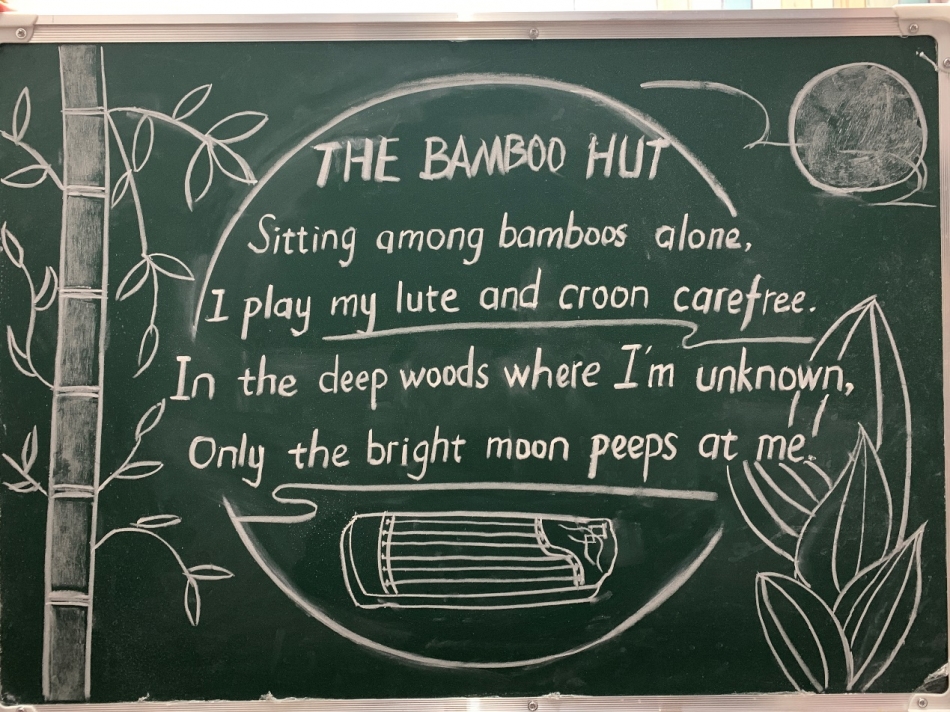 THE BAMBOO HUT
Sitting among bamboos alone,
I play my lute and croon carefree.
In the deep woods where I'm unknown,
Only the bright moon peeps at me.